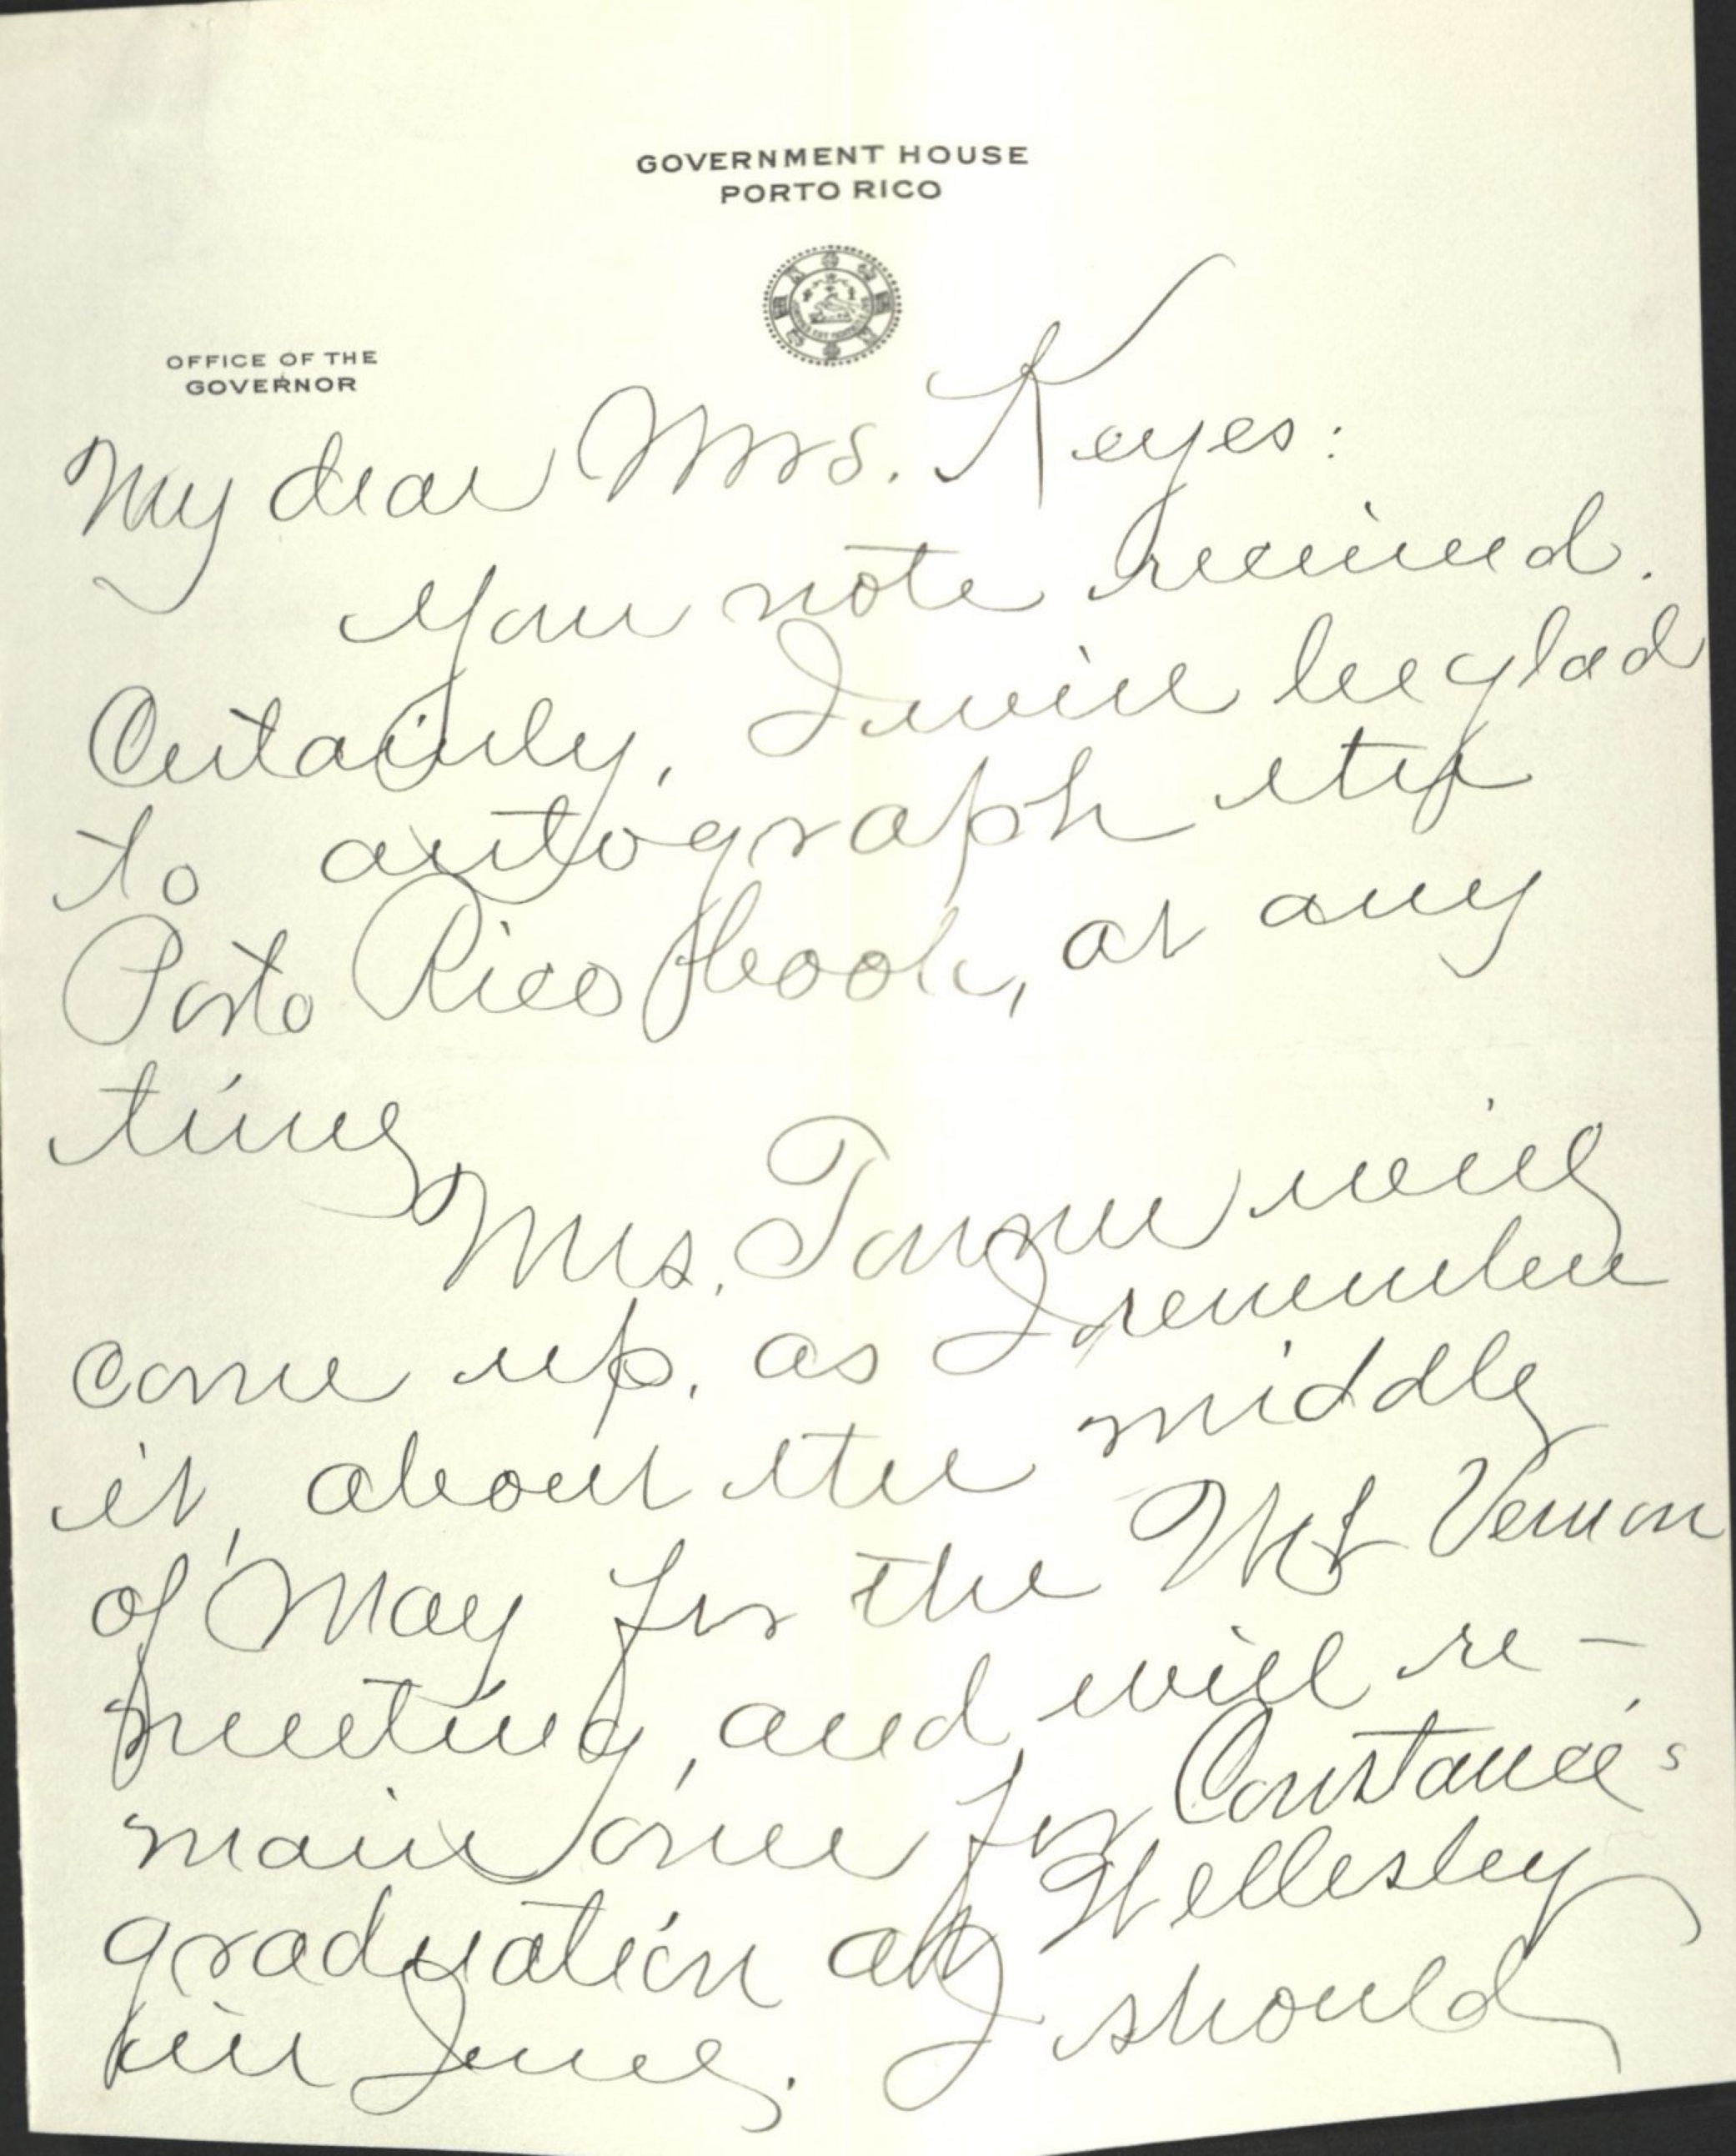 GOVERNMENT HOUSE
PORTO RICO
OFFICE OF THE
GOVERNOR
My dear Mrs. Keyes:
Your note received.
Certainly, I will be glad
to autograph the
Porto Rico book, at any
time
Mrs. Towner will
come up, as I remember
it, about the middle
of May for the Mt Vernon
meeting, and will re-
main over for Constance's
graduation at Wellesley
in June. I should